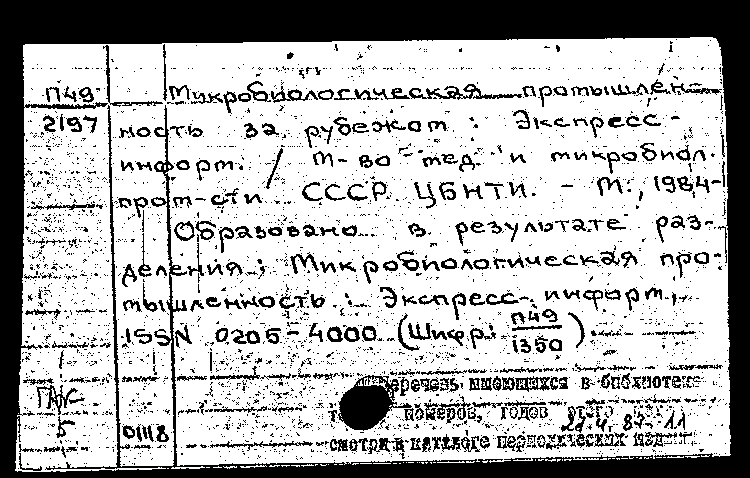 П49 Микробиологическая промышлен-
2197 ность за рубежом : Экспресс-
информ. / М-во мед. и микробиол.
пром-сти СССР ЦБНТИ. - М., 1984-
Образовано в результате раз-
деления: Микробиологическая про-
мышленность : Экспресс-информ.,
ISSN 0206-4000 (Шифр: П49/1350)
Перечень имеющихся в библиотеке
номеров, годов этого
5 01118 21.4.87. 11
смотри в каталоге периодических изд